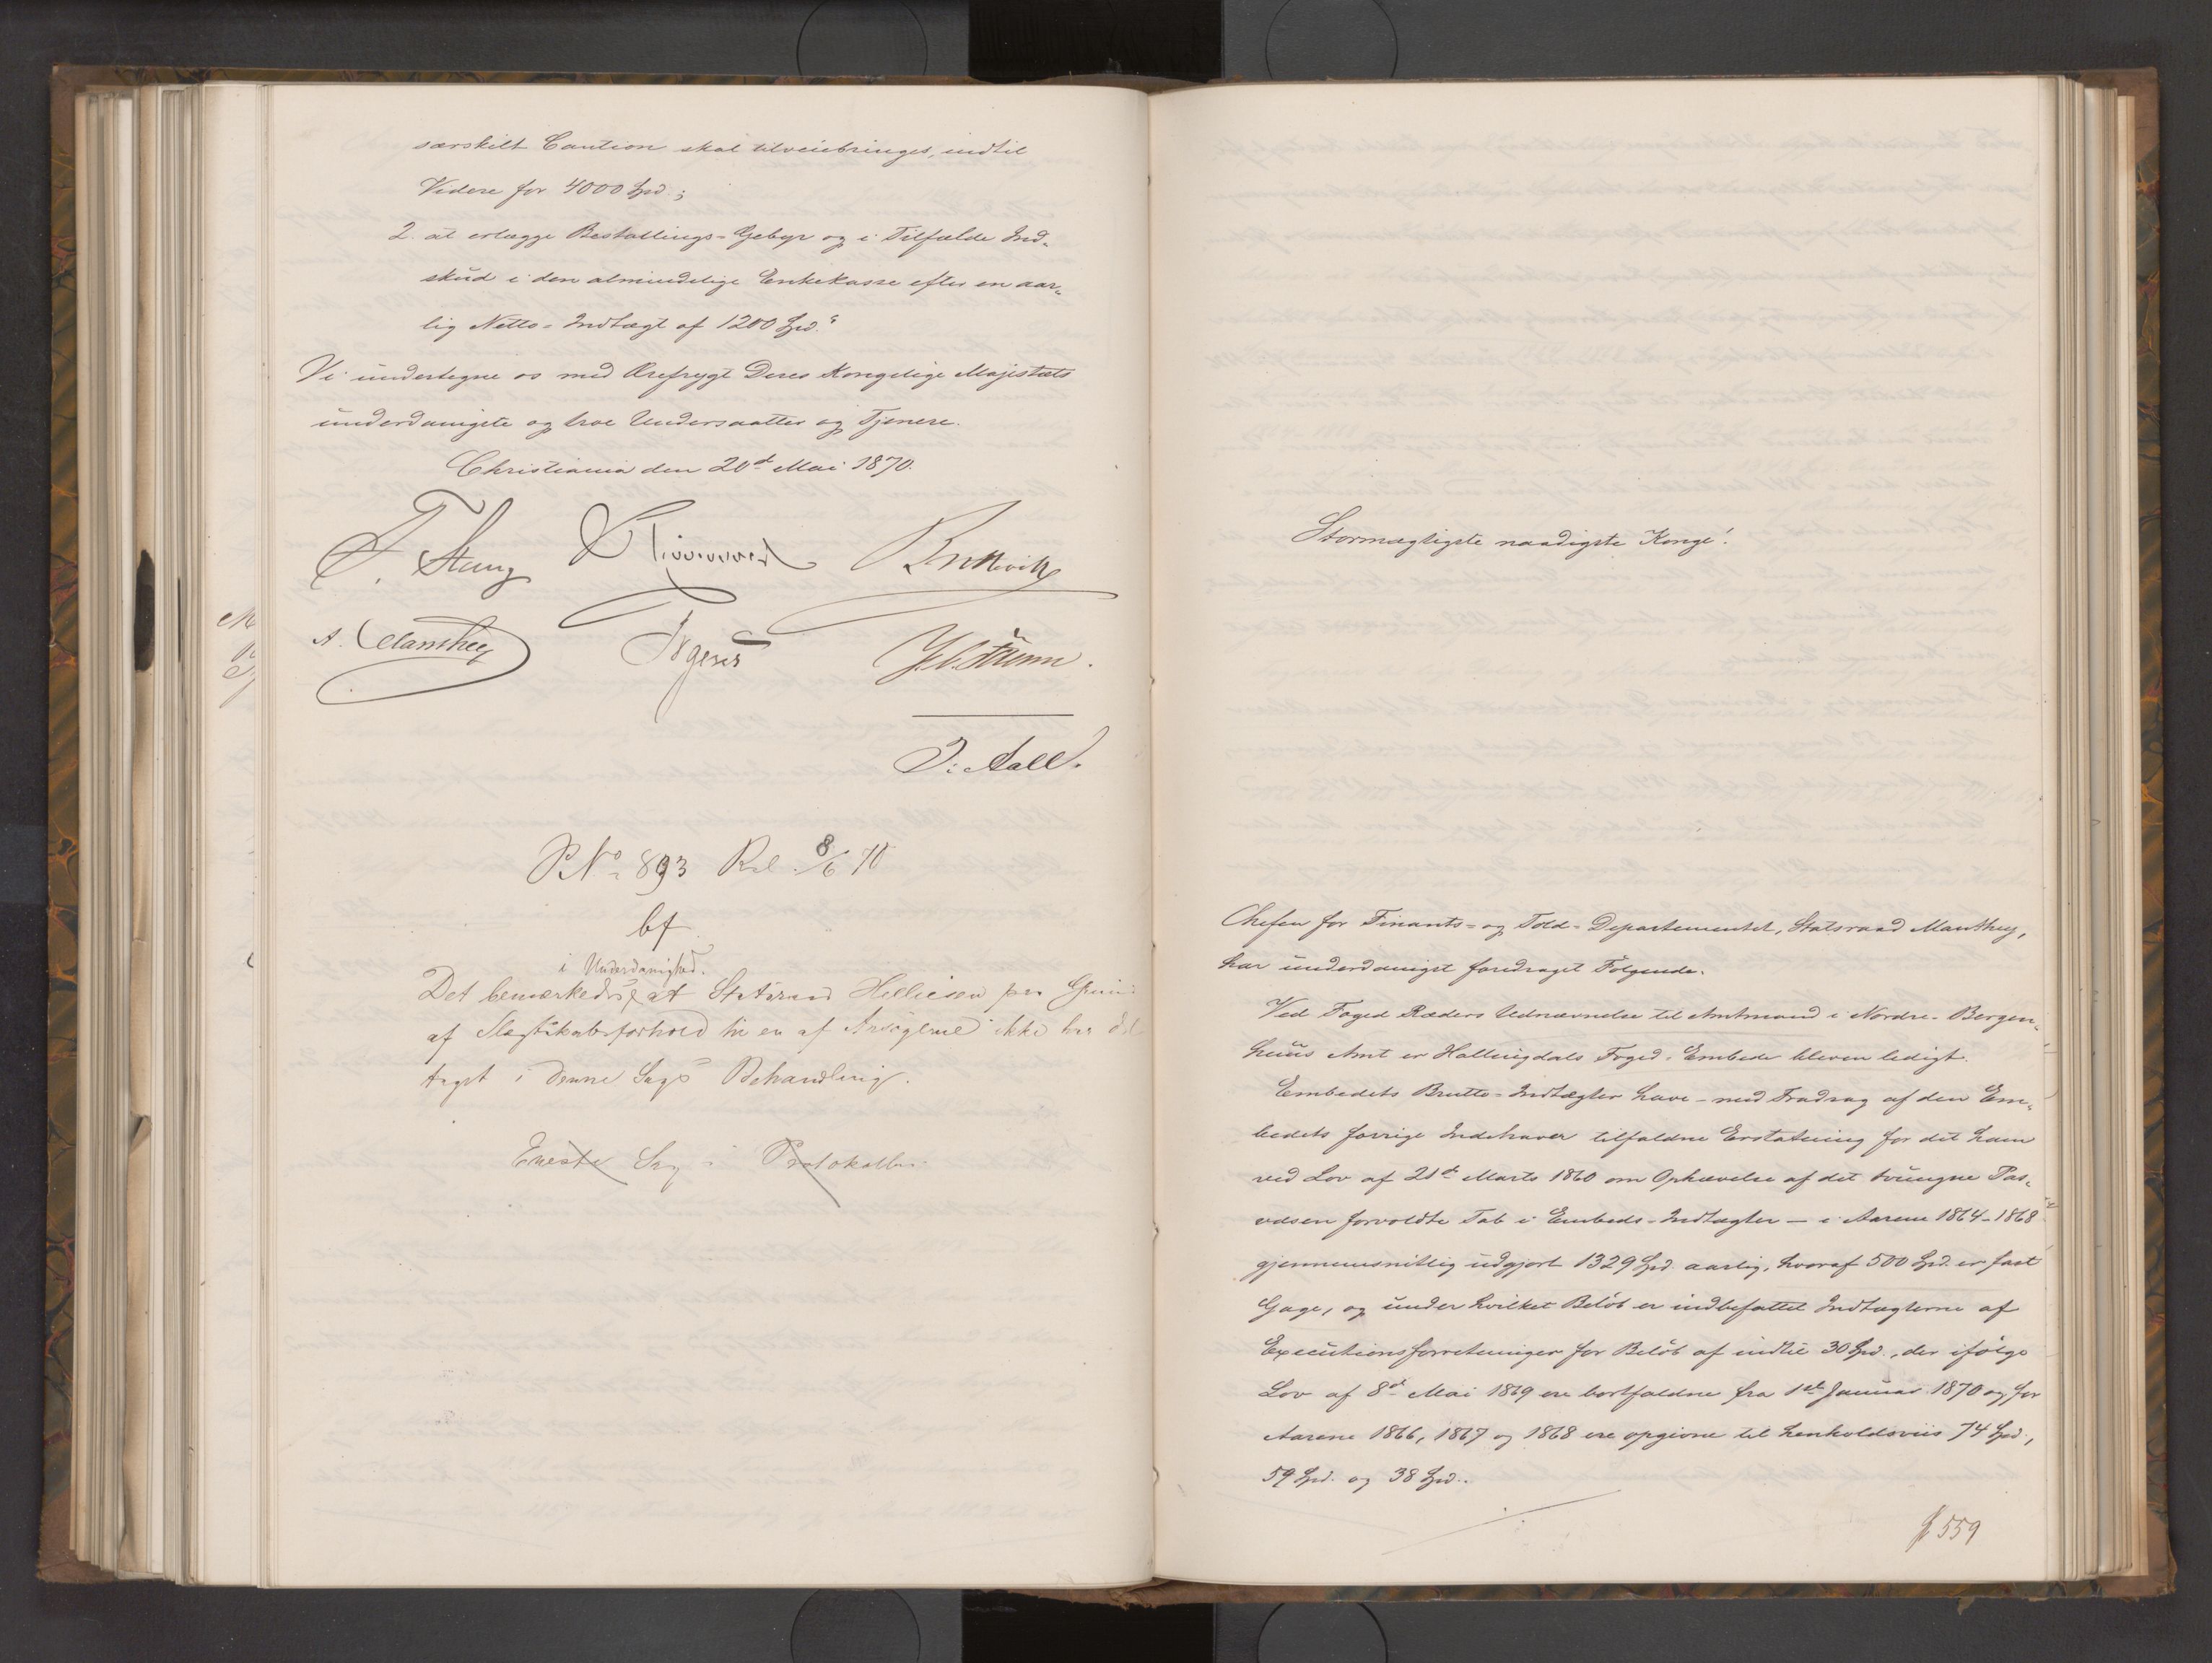 særskilt Caution skal tilveiebringes, indtil
Videre for 4000 Spd.;
2. at erlægge Bestallings-Gebyr og i Tilfælde Ind-
skud i den almindelige Enkekasse efter en aar-
lig Netto-Indtægt af 1200 Spd."
Vi undertegne os med Ærefrygt Deres Kongelige Majestæts
underdanigste og troe Undersaatter og Tjenere.
Christiania den 20d Mai 1870.
F. Stang
A. Manthey
J. Aall.
P No 893 Rel. 8/6 70
bf
i Underdanighed.
Det bemærkedes, at Statsraad Helliesen paa Grund
af Slægtskabsforhold til en af Ansøgerne ikke har del-
taget i denne Sags Behandling.
Eneste Sag i Protokollen.
Stormægtigste naadigste Konge!
Chefen for Finants- og Told-Departementet, Statsraad Manthey,
har underdanigst foredraget Følgende.
Ved Foged Ræders Udnævnelse til Amtmand i Nordre-Bergen-
huus Amt er Hallingdals Foged-Embede bleven ledigt.
Embedets Brutto-Indtægter have - med Fradrag af den Em-
bedets forrige Indehaver tilfaldne Erstatning for det ham
ved Lov af 21d Marts 1860 om Ophævelse af det tvungne Pas-
væsen forvoldte Tab i Embeds-Indtægter — i Aarene 1864-1868
gjennemsnitlig udgjort 1329 Spd. aarlig, hvoraf 500 Spd. er fast
Gage, og under hvilket Beløb er indbefattet Indtægterne af
Executionsforretninger for Beløb af indtil 30 Spd., der ifølge
Lov af 8d Mai 1869 ere bortfaldne fra 1ste Januar 1870 og for
Aarene 1866, 1867 og 1868 ere opgivne til henholdsviis 74 Spd.,
59 Spd. og 38 Spd..
559